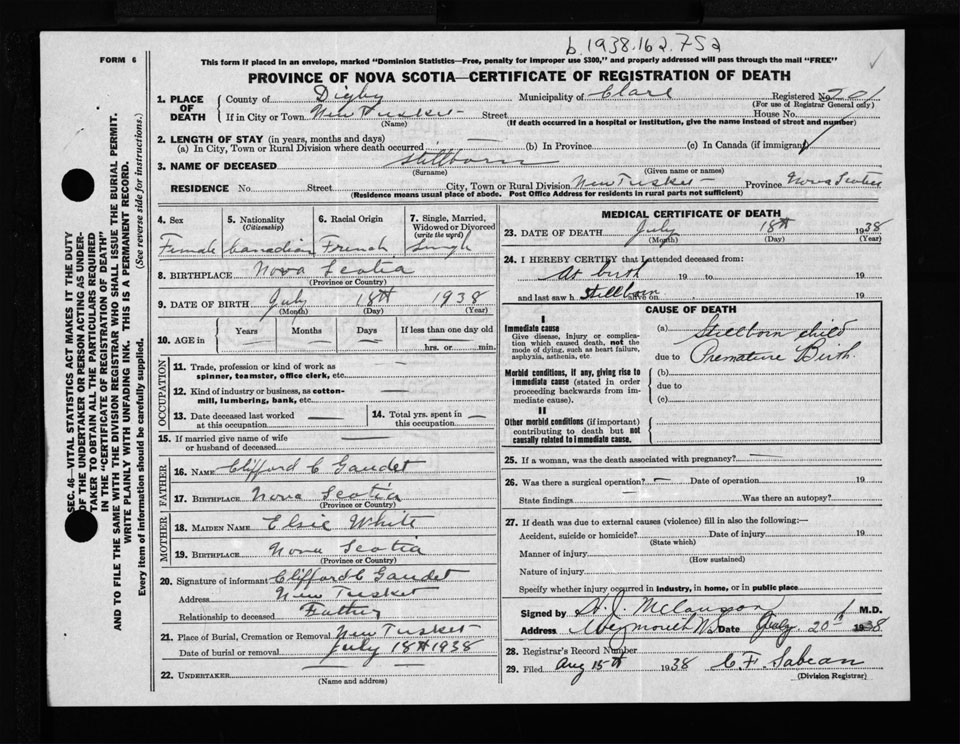 b.1938.162.752
FORM 6
This form if placed in an envelope, marked "Dominion Statistics—Free, penalty for improper use $300," and properly addressed will pass through the mail "FREE"
PROVINCE OF NOVA SCOTIA—CERTIFICATE OF REGISTRATION OF DEATH
1. PLACE OF DEATH
County of Digby Municipality of Clare Registered No. 201
(For use of Registrar General only)
If in City or Town New Tusket Street House No.
(Name) (If death occurred in a hospital or institution, give the name instead of street and number)
2. LENGTH OF STAY (in years, months and days)
(a) In City, Town or Rural Division where death occurred (b) In Province (c) In Canada (if immigrant)
3. NAME OF DECEASED Stillborn
(Surname) (Given name or names)
RESIDENCE No. Street City, Town or Rural Division New Tusket Province Nova Scotia
(Residence means usual place of abode. Post Office Address for residents in rural parts not sufficient)
4. Sex 5. Nationality (Citizenship) 6. Racial Origin 7. Single, Married, Widowed or Divorced (write the word)
Female Canadian French Single
8. BIRTHPLACE Nova Scotia
(Province or Country)
9. DATE OF BIRTH July 18th 1938
(Month) (Day) (Year)
10. AGE in Years Months Days If less than one day old
hrs. or min.
OCCUPATION
11. Trade, profession or kind of work as
spinner, teamster, office clerk, etc.
12. Kind of industry or business, as cotton-
mill, lumbering, bank, etc.
13. Date deceased last worked at this occupation 14. Total yrs. spent in this occupation
15. If married give name of wife
or husband of deceased
FATHER
16. NAME Clifford C Gaudet
17. BIRTHPLACE Nova Scotia
(Province or Country)
MOTHER
18. MAIDEN NAME Elsie White
19. BIRTHPLACE Nova Scotia
(Province or Country)
20. Signature of informant Clifford C Gaudet
Address New Tusket
Relationship to deceased Father
21. Place of Burial, Cremation or Removal New Tusket
Date of burial or removal July 18th 1938
22. UNDERTAKER
(Name and address)
MEDICAL CERTIFICATE OF DEATH
23. DATE OF DEATH July 18th 1938
(Month) (Day) (Year)
24. I HEREBY CERTIFY that I attended deceased from:
At birth 19 to 19
and last saw h Stillborn alive on 19
CAUSE OF DEATH
I
Immediate cause
Give disease, injury or complica-
tion which caused death, not the
mode of dying, such as heart failure,
asphyxia, asthenia, etc.
(a) Stillborn child
due to Premature Birth.
Morbid conditions, if any, giving rise to
immediate cause (stated in order
proceeding backwards from im-
mediate cause).
(b)
due to
(c)
II
Other morbid conditions (if important)
contributing to death but not
causally related to immediate cause.
25. If a woman, was the death associated with pregnancy?
26. Was there a surgical operation? Date of operation 19
State findings Was there an autopsy?
27. If death was due to external causes (violence) fill in also the following:—
Accident, suicide or homicide? Date of injury 19
(State which)
Manner of injury
(How sustained)
Nature of injury
Specify whether injury occurred in industry, in home, or in public place
Signed by H. J. M.D.
Address Weymouth N.S. Date July 20th 1938
28. Registrar's Record Number
29. Filed Aug 15th 1938 C. F. Sabean
(Division Registrar)
SEC. 46—VITAL STATISTICS ACT MAKES IT THE DUTY
OF THE UNDERTAKER OR PERSON ACTING AS UNDER-
TAKER TO OBTAIN ALL THE PARTICULARS REQUIRED
IN THE "CERTIFICATE OF REGISTRATION OF DEATH"
AND TO FILE THE SAME WITH THE DIVISION REGISTRAR WHO SHALL ISSUE THE BURIAL PERMIT.
WRITE PLAINLY WITH UNFADING INK. THIS IS A PERMANENT RECORD.
Every item of information should be carefully supplied. (See reverse side for instructions.)